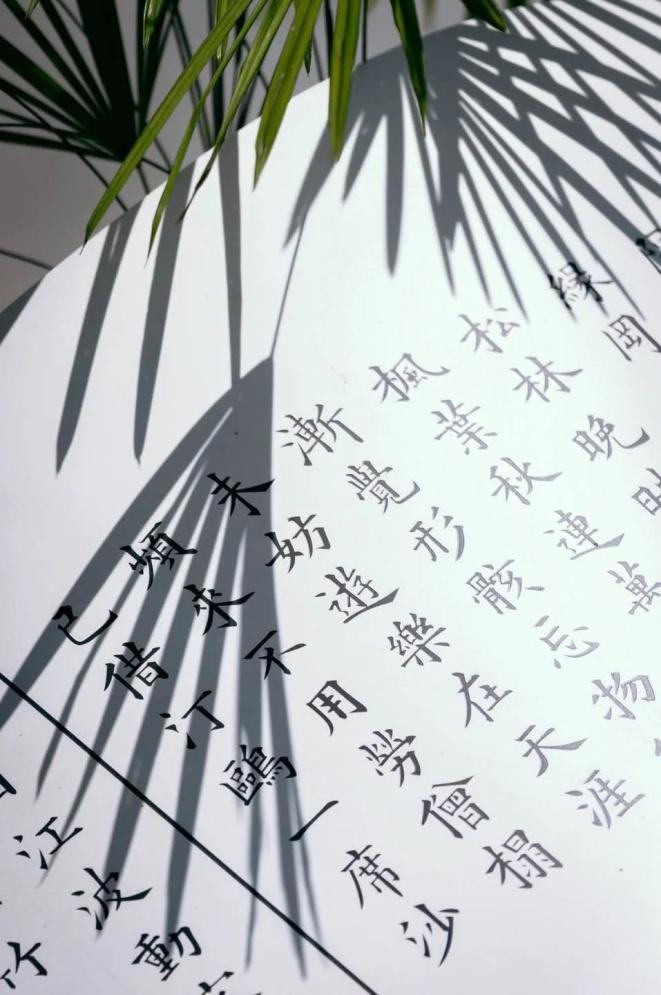 緣岡
松林晚映
楓葉秋連萬
漸覺形骸忘物
未妨遊樂在天涯
頻來不用勞僧榻
已借汀鷗一席沙
江波動
竹